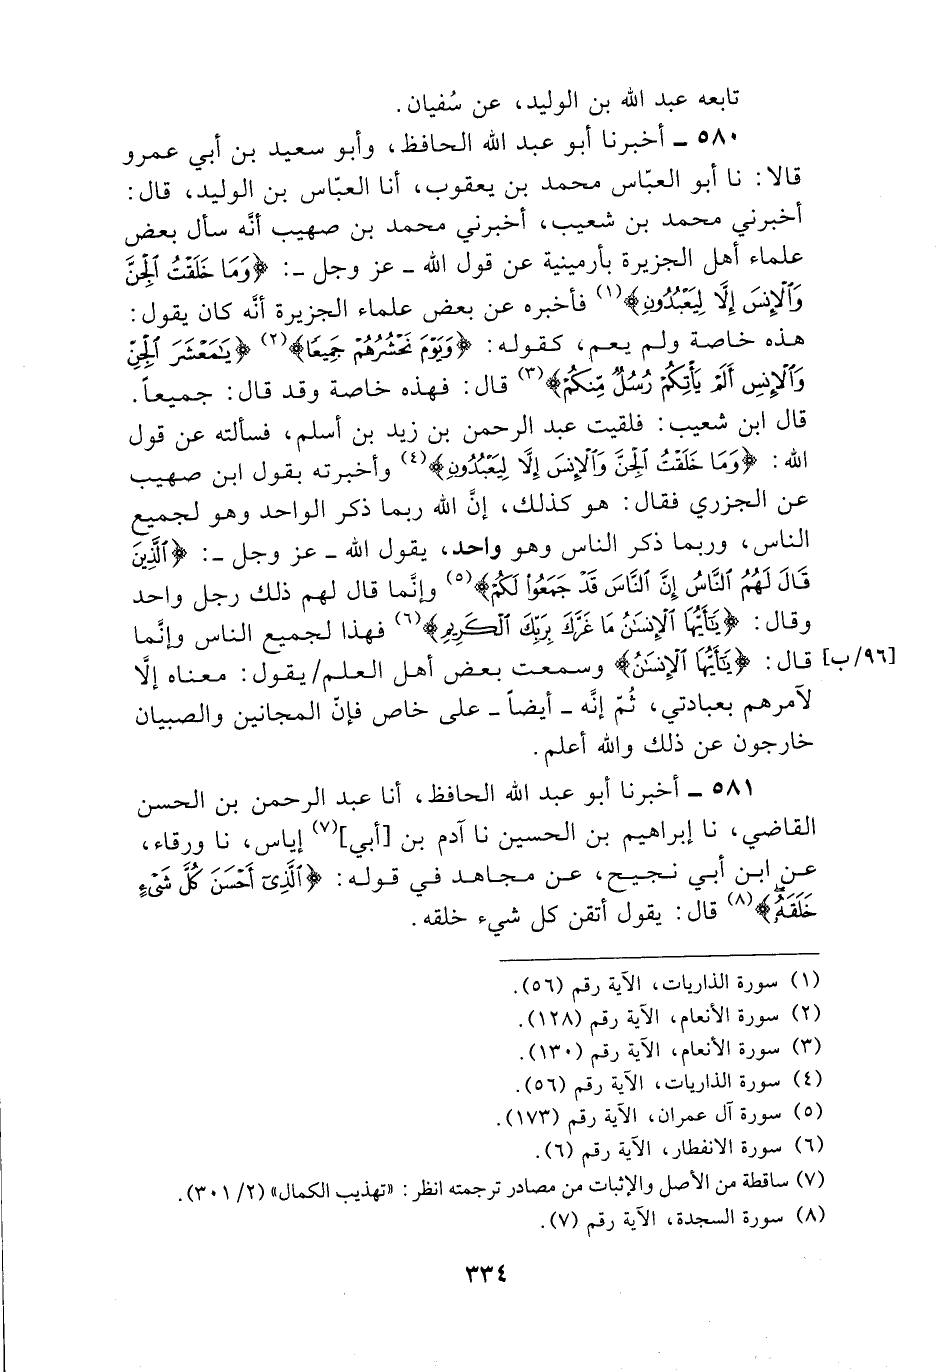 تابعه عبد الله بن الوليد، عن سُفيان.
٥٨٠ ـ أخبرنا أبو عبد الله الحافظ، وأبو سعيد بن أبي عمرو
قالا: نا أبو العبّاس محمد بن يعقوب، أنا العبّاس بن الوليد، قال:
أخبرني محمد بن شعيب، أخبرني محمد بن صهيب أنَّه سأل بعض
علماء أهل الجزيرة بأرمينية عن قول الله ـ عز وجل ـ: ﴿وَمَا خَلَقْتُ ٱلْجِنَّ
وَٱلْإِنسَ إِلَّا لِيَعْبُدُونِ﴾(١) فأخبره عن بعض علماء الجزيرة أنَّه كان يقول:
هذه خاصة ولم يعم، كقوله: ﴿وَيَوْمَ نَحْشُرُهُمْ جَمِيعًا﴾(٢) ﴿يَٰمَعْشَرَ ٱلْجِنِّ
وَٱلْإِنسِ أَلَمْ يَأْتِكُمْ رُسُلٌ مِّنكُمْ﴾(٣) قال: فهذه خاصة وقد قال: جميعاً.
قال ابن شعيب: فلقيت عبد الرحمن بن زيد بن أسلم، فسألته عن قول
الله: ﴿وَمَا خَلَقْتُ ٱلْجِنَّ وَٱلْإِنسَ إِلَّا لِيَعْبُدُونِ﴾(٤) وأخبرته بقول ابن صهيب
عن الجزري فقال: هو كذلك، إنَّ الله ربما ذكر الواحد وهو لجميع
الناس، وربما ذكر الناس وهو واحد، يقول الله ـ عز وجل ـ: ﴿ٱلَّذِينَ
قَالَ لَهُمُ ٱلنَّاسُ إِنَّ ٱلنَّاسَ قَدْ جَمَعُوا۟ لَكُمْ﴾(٥) وإنَّما قال لهم ذلك رجل واحد
وقال: ﴿يَٰٓأَيُّهَا ٱلْإِنسَٰنُ مَا غَرَّكَ بِرَبِّكَ ٱلْكَرِيمِ﴾(٦) فهذا لجميع الناس وإنَّما
[٩٦/ب] قال: ﴿يَٰٓأَيُّهَا ٱلْإِنسَٰنُ﴾ وسمعت بعض أهل العلم/يقول: معناه إلَّا
لآمرهم بعبادتي، ثُمّ إنَّه ـ أيضاً ـ على خاص فإنّ المجانين والصبيان
خارجون عن ذلك والله أعلم.
٥٨١ ـ أخبرنا أبو عبد الله الحافظ، أنا عبد الرحمن بن الحسن
القاضي، نا إبراهيم بن الحسين نا آدم بن [أبي](٧) إياس، نا ورقاء،
عن ابن أبي نجيح، عن مجاهد في قوله: ﴿ٱلَّذِىٓ أَحْسَنَ كُلَّ شَىْءٍ
خَلَقَهُۥ﴾(٨) قال: يقول أتقن كل شيء خلقه.
(١) سورة الذاريات، الآية رقم (٥٦).
(٢) سورة الأنعام، الآية رقم (١٢٨).
(٣) سورة الأنعام، الآية رقم (١٣٠).
(٤) سورة الذاريات، الآية رقم (٥٦).
(٥) سورة آل عمران، الآية رقم (١٧٣).
(٦) سورة الانفطار، الآية رقم (٦).
(٧) ساقطة من الأصل والإثبات من مصادر ترجمته انظر: «تهذيب الكمال» (٢/ ٣٠١).
(٨) سورة السجدة، الآية رقم (٧).
٣٣٤